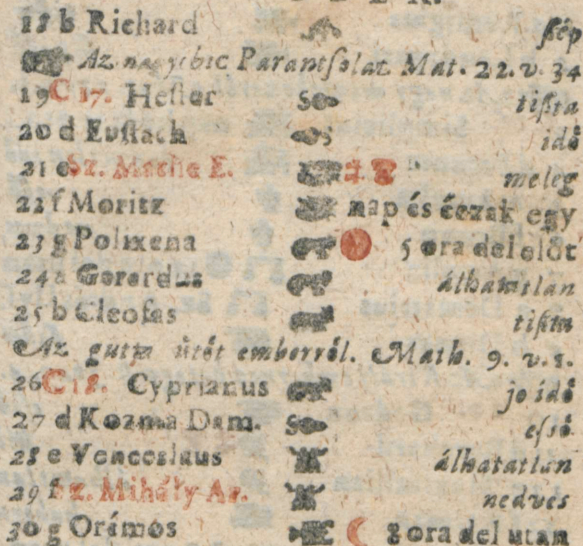 18 b Richard ſép
Az nagyobic Parantſolat Mat. 22. v. 34
19 C 17. Heſter tiſta
20 d Euſtach idö
21 e Sz. Mathe E. meleg
22 f Moritz nap és éczak egy
23 g Polixena 5 ora del elöt
24 a Gerardus álhatatlan
25 b Cleofas tiſta
Az gutta ütöt emberröl. Math. 9. v. 1.
26 C 18. Cyprianus jo idö
27 d Kozma Dam. eſsö
28 e Venceslaus álhatatlan
29 f Sz. Mihály Ar. nedves
30 g Orámos 8 ora del utan